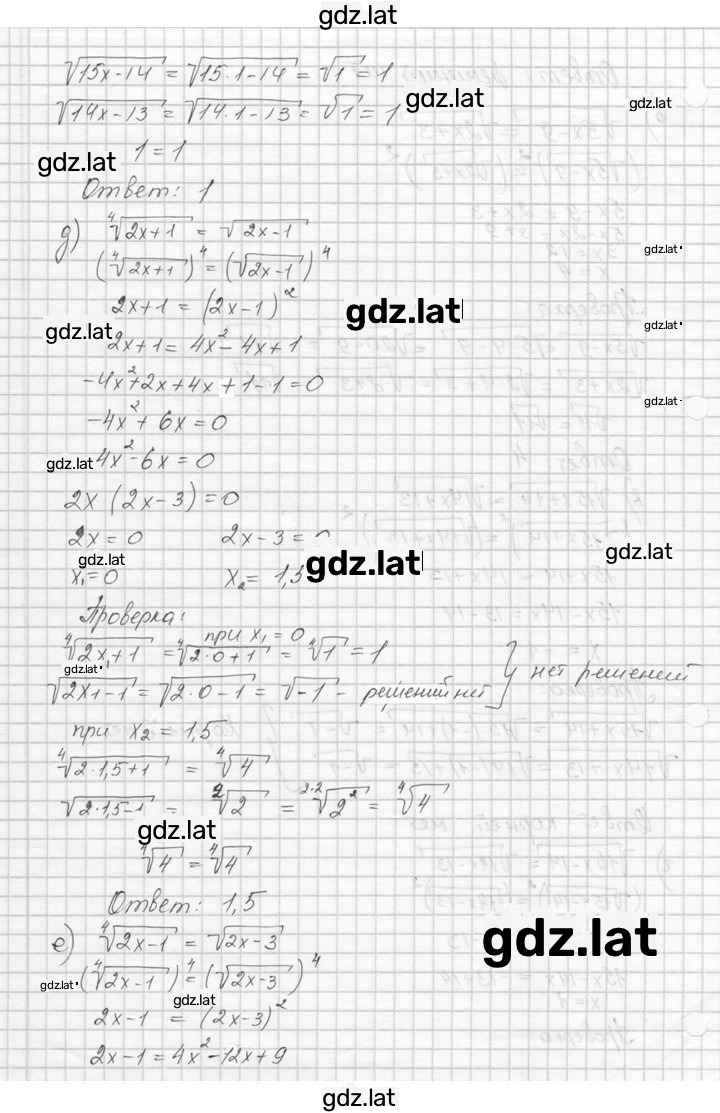 gdz.lat
√15x-14 = √15·1-14 = √1 = 1
√14x-13 = √14·1-13 = √1 = 1
gdz.lat
gdz.lat
gdz.lat
1 = 1
Ответ: 1
д) ⁴√2x+1 = √2x-1
(⁴√2x+1)⁴ = (√2x-1)⁴
gdz.lat
2x+1 = (2x-1)²
gdz.lat
gdz.lat
gdz.lat
2x+1 = 4x²-4x+1
-4x²+2x+4x+1-1=0
gdz.lat
-4x²+6x=0
gdz.lat 4x²-6x=0
2x(2x-3)=0
2x=0 2x-3=0
gdz.lat
gdz.lat
gdz.lat
x₁=0 x₂=1,5
Проверка:
при x₁=0
⁴√2x₁+1 = ⁴√2·0+1 = ⁴√1 = 1
gdz.lat
√2x₁-1 = √2·0-1 = √-1 - решений нет } нет решений
при x₂=1,5
⁴√2·1,5+1 = ⁴√4
√2·1,5-1 = ²√2 = ²·²√2² = ⁴√4
gdz.lat
⁴√4 = ⁴√4
Ответ: 1,5
е) ⁴√2x-1 = √2x-3
gdz.lat
gdz.lat (⁴√2x-1)⁴ = (√2x-3)⁴
gdz.lat
2x-1 = (2x-3)²
2x-1=4x²-12x+9
gdz.lat